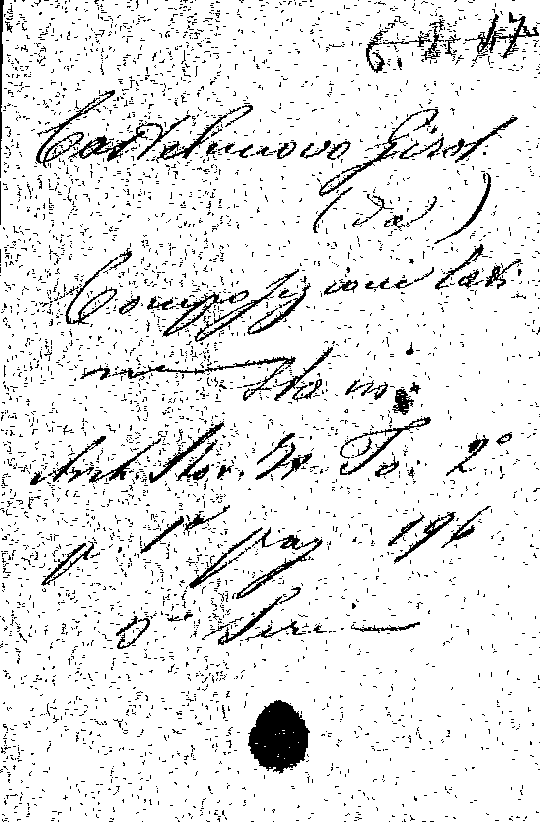 6. 17
Castelnuovo Girol.
(da)
Composizioni lati
ne
Sta in:
Arch. Stor. It. To. 2°
p. 1ª pag. 196
Serie